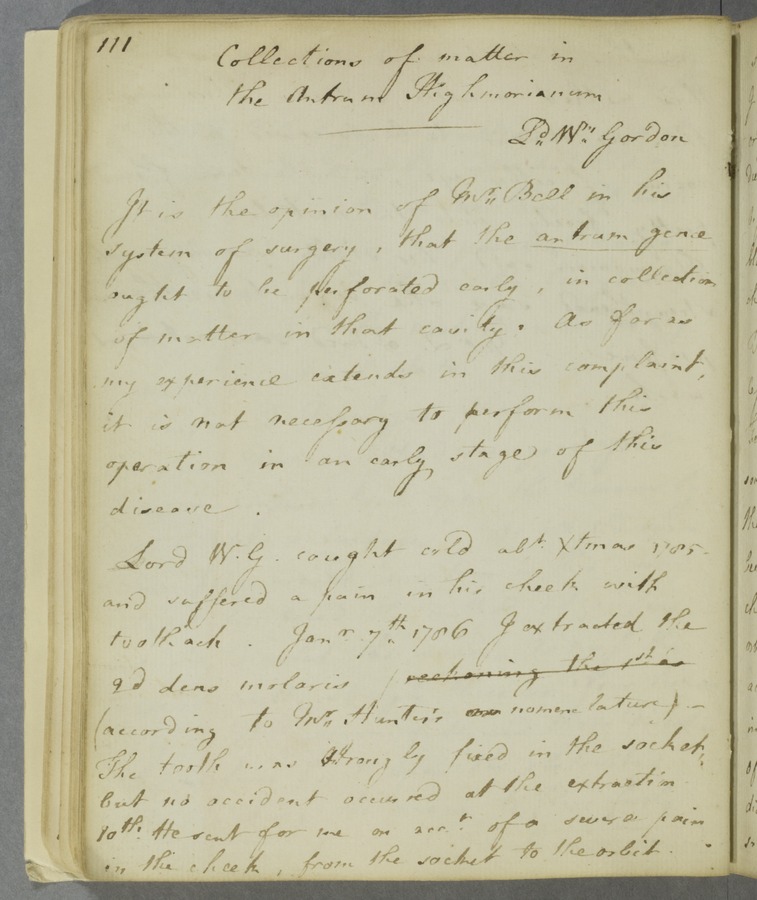 111
Collections of matter in
the Antrum Highmorianum
Ld Wm Gordon
It is the opinion of Mr Bell in his
system of surgery, that the antrum genæ
ought to be perforated early, in collection
of matter in that cavity. As far as
my experience extends in this complaint,
it is not necessary to perform this
operation in an early stage of this
disease.
Lord W. G. caught cold abt Xtmas 1785
and suffered a pain in his cheek with
toothach. Janr 7th 1786 I extracted the
2d dens molaris (reckoning the 1st as
(according to Mr Hunter's nomenclature) –
The tooth was strongly fixed in the socket,
but no accident occurred at the extraction
10th. He sent for me on acct of a severe pain
in the cheek, from the socket to the orbit.